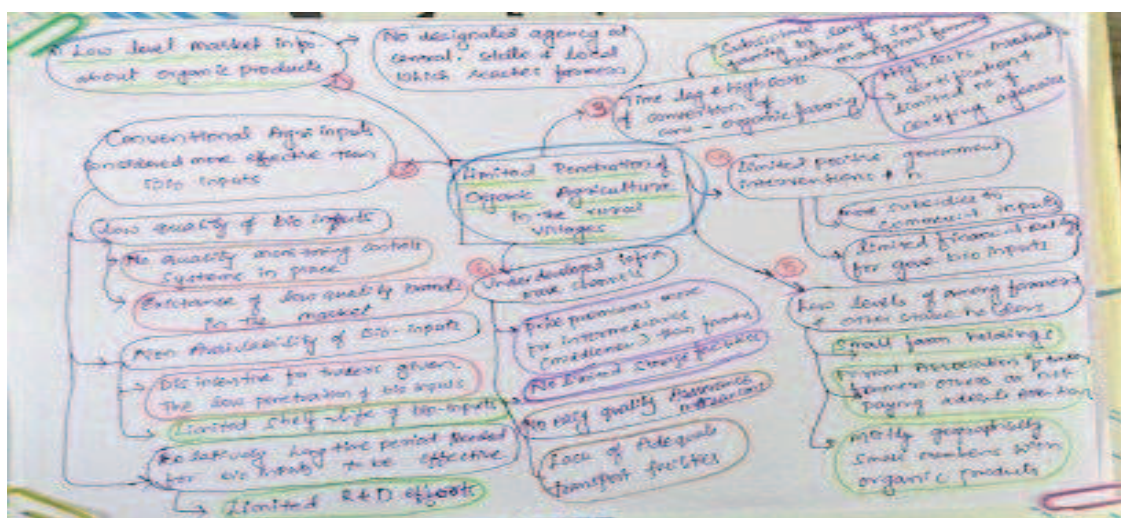 Low level market info.
about organic products
No designated agency at
central, state & local
which reaches farmers
3
Time lag & high costs
of conversion of
organic farming
High costs involved
certification &
limited no. of
certifying agencies
Conventional Agri inputs
considered more effective than
bio inputs
Limited Penetration of
Organic Agriculture
in the rural
villages
limited positive government
interventions
more subsidies to
commercial inputs
limited financial
for bio inputs
Low quality of bio inputs
No quality monitoring controls
systems in place
Existance of low quality brands
in the market
Non Availability of bio-inputs
Disincentive for traders given
the low penetration of bio inputs
Limited shelf-life of bio-inputs
Relatively long time period Needed
for bio inputs to be effective
Limited R & D efforts
Underdeveloped infra
price premiums more
for intermediaries
(middlemen) than farmers
No storage facilities
No easy quality Assurance
Lack of Adequate
transport facilities
5
Low levels of among farmers
& other stake holders
Small farm holdings
farmers
paying attention
Mostly geographically
small numbers with
organic products